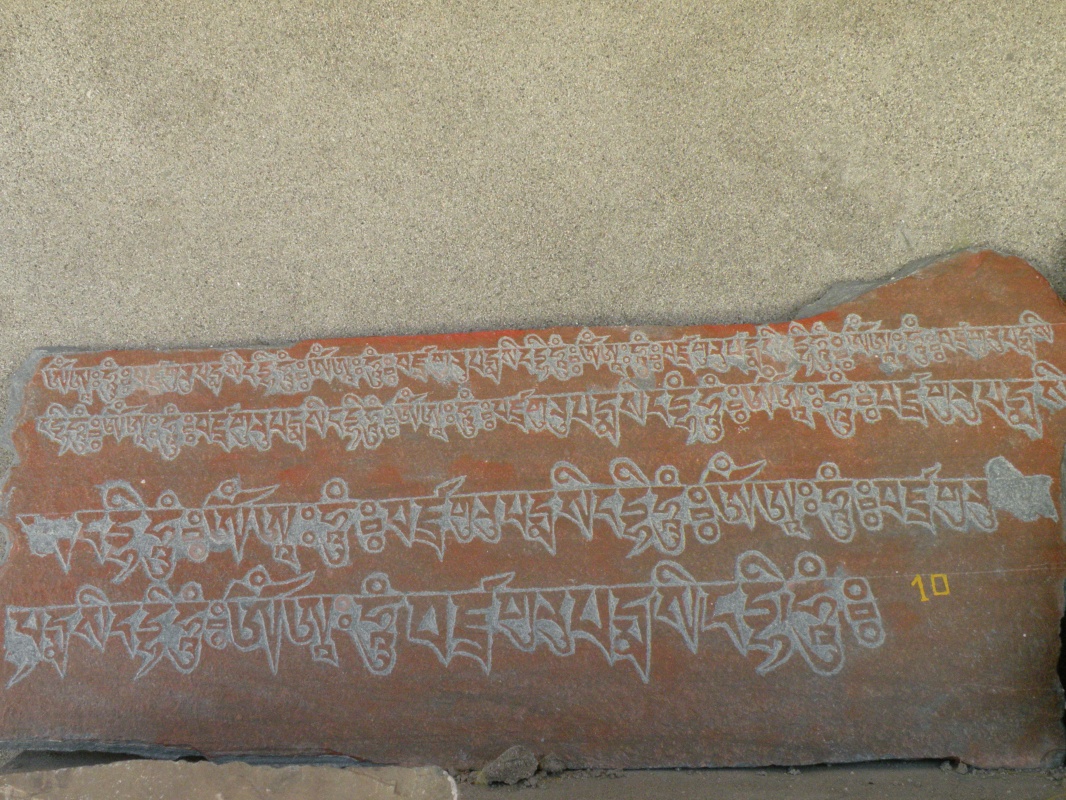 ཨོཾཨཱཿཧཱུྃ༔བཛྲགུརུཔདྨསིདྡྷིཧཱུྃ༔ཨོཾཨཱཿཧཱུྃ༔བཛྲགུརུཔདྨསིདྡྷིཧཱུྃ༔ཨོཾཨཱཿཧཱུྃ༔བཛྲགུརུཔདྨསིདྡྷིཧཱུྃ༔ཨོཾཨཱཿཧཱུྃ༔བཛྲགུརུཔདྨསི
དྡྷིཧཱུྃ༔ཨོཾཨཱཿཧཱུྃ༔བཛྲགུརུཔདྨསིདྡྷིཧཱུྃ༔ཨོཾཨཱཿཧཱུྃ༔བཛྲགུརུཔདྨསིདྡྷིཧཱུྃ༔ཨོཾཨཱཿཧཱུྃ༔བཛྲགུརུཔདྨསི
དྡྷིཧཱུྃ༔ཨོཾཨཱཿཧཱུྃ༔བཛྲགུརུཔདྨསིདྡྷིཧཱུྃ༔ཨོཾཨཱཿཧཱུྃ༔བཛྲགུརུ
པདྨསིདྡྷིཧཱུྃ༔ཨོཾཨཱཿཧཱུྃབཛྲགུརུཔདྨསིདྡྷིཧཱུྃ༔
10